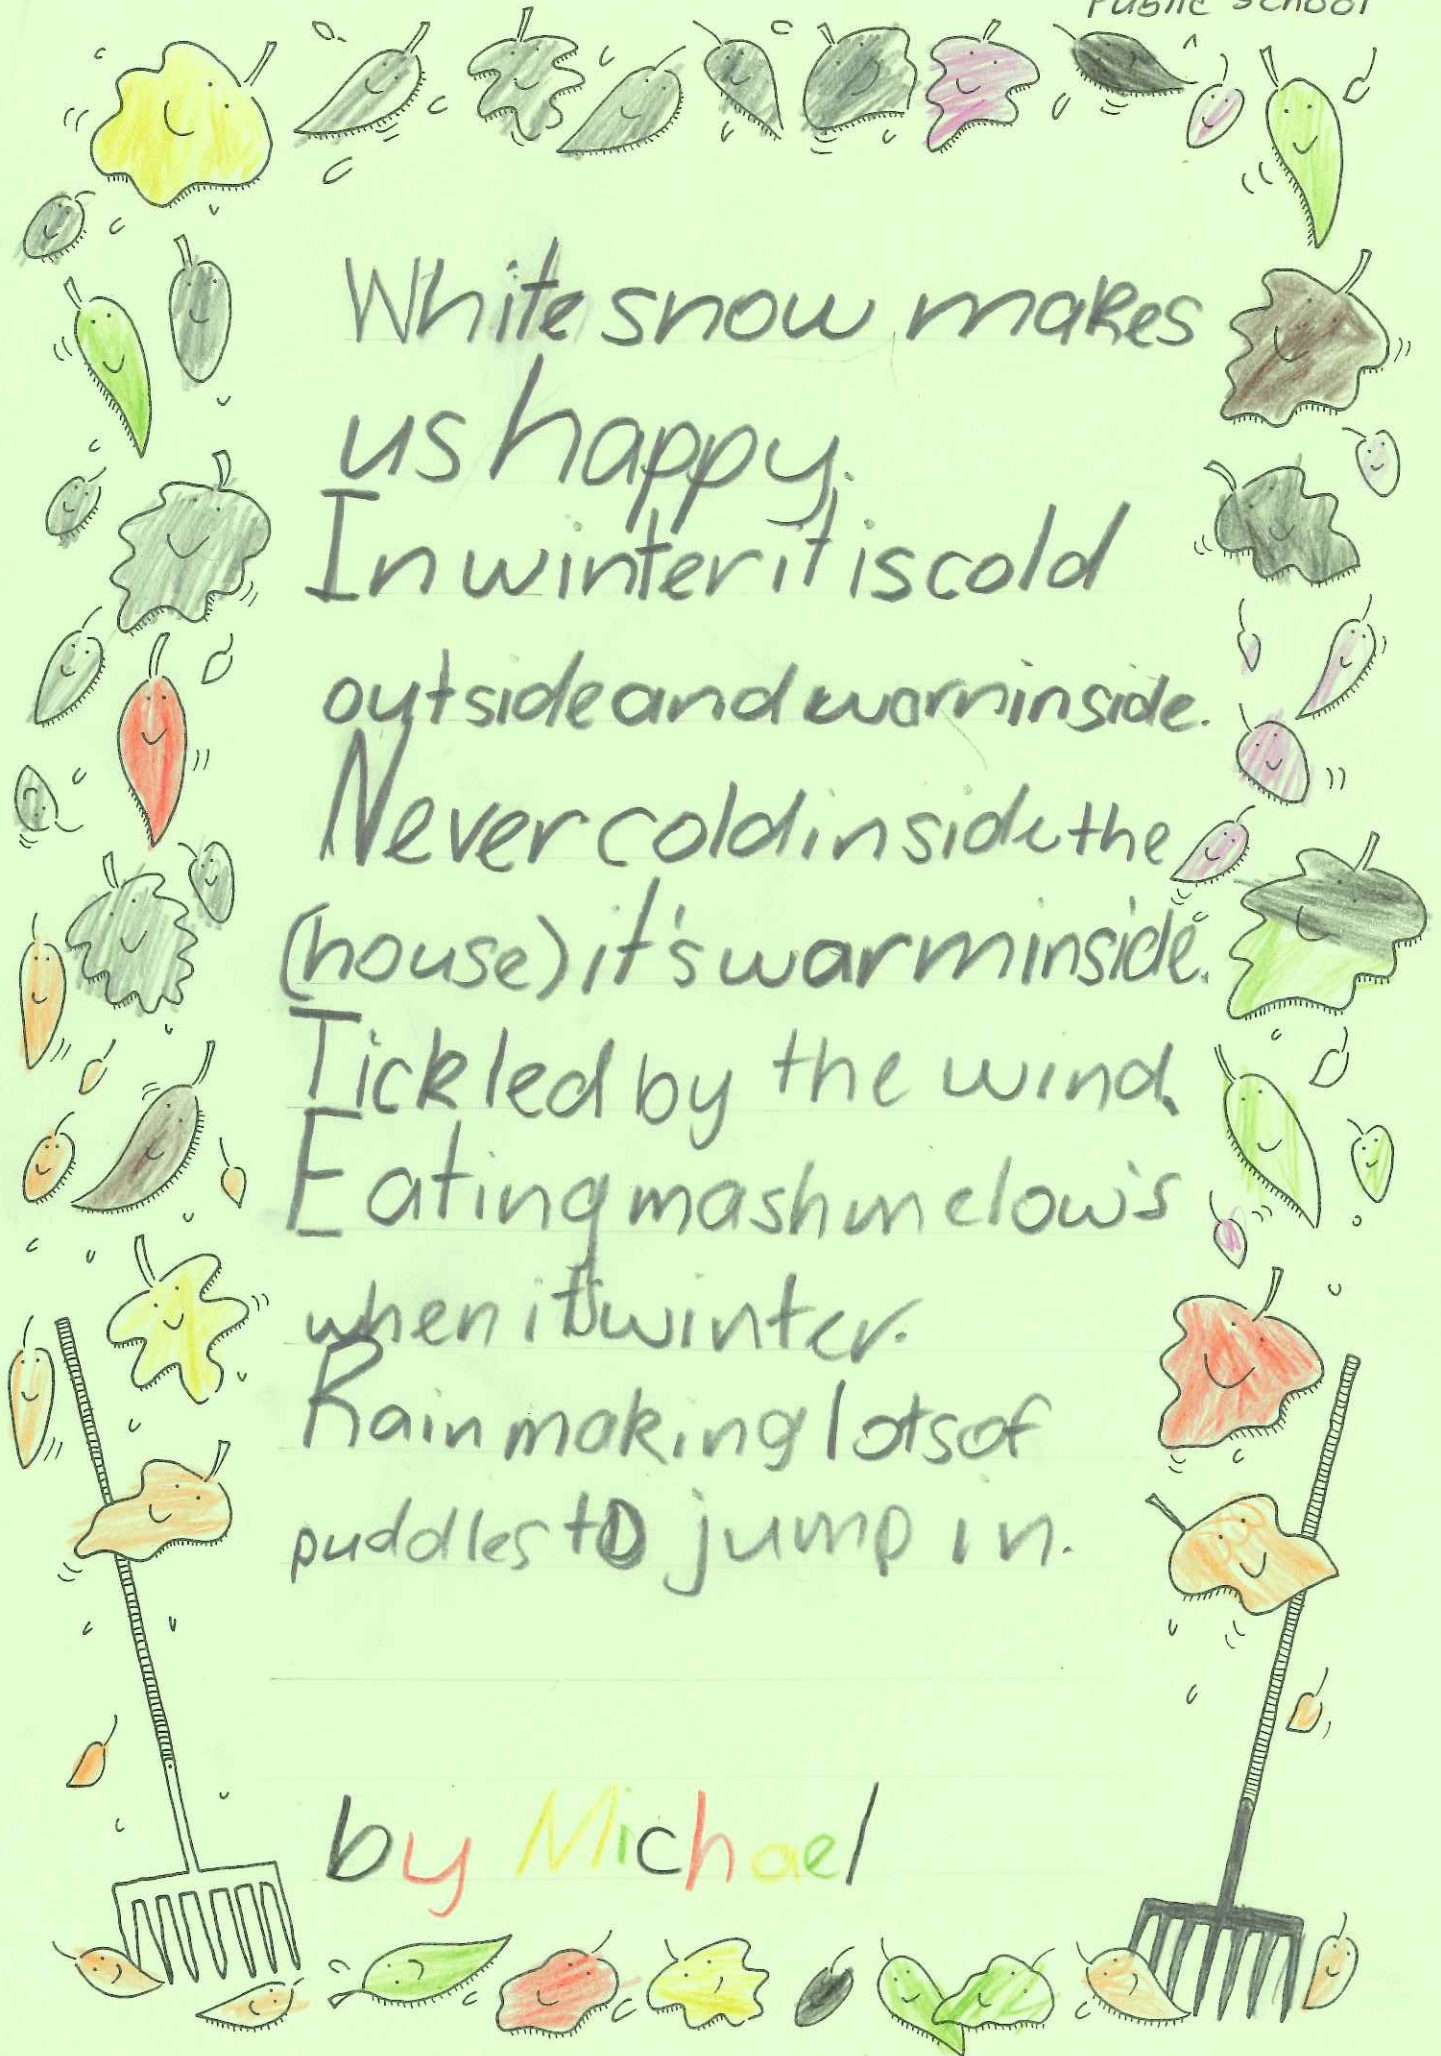 Public School
White snow makes
us happy.
In winter it is cold
outside and warm inside.
Never cold inside the
(house) it's warm inside.
Tickled by the wind.
Eating mashmelow's
when it's winter.
Rain making lots of
puddles to jump in.
by Michael